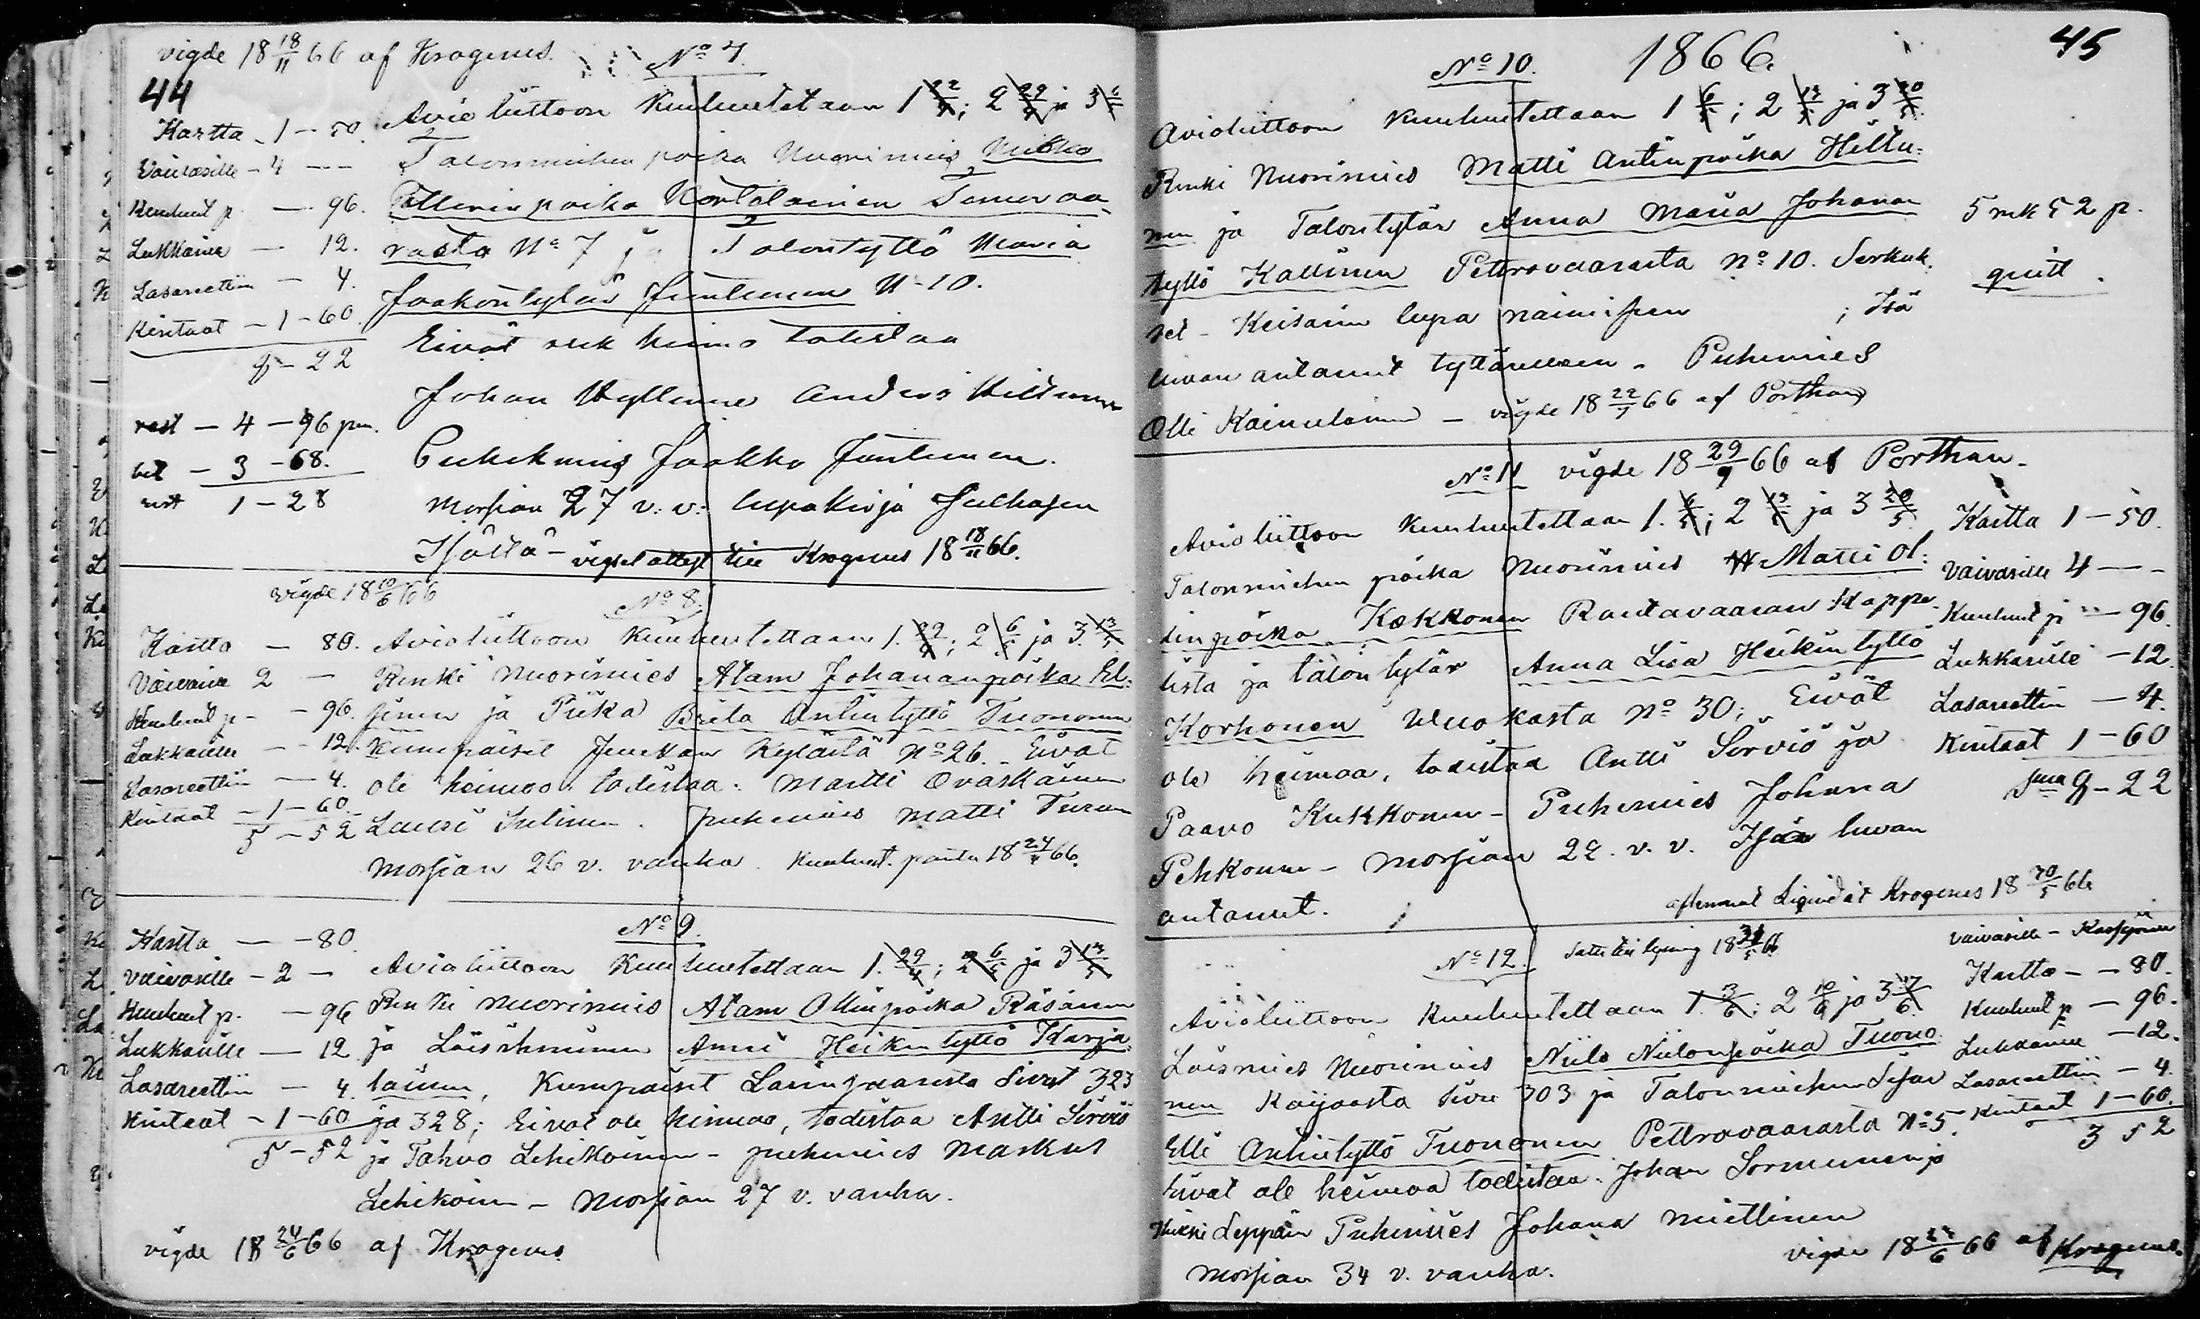 vigde 18 18/11 66 af Krogerus.
44
No 7.
Avioliittoon Kuulutetaan 1 22/4; 2 29/4 ja 3 6/5
Talonmiehen poika Nuorimies Mikko
Pollarinpoika Vartolainen Timovaa-
rasta No 7 ja Talontyttö Maria
Jaakontytär Juntunen N 10.
Eivät suk heimo todistaa
Johan Kyllinne Anders Kiltunen
Puhemies Jaakko Juntunen.
Morsian 27 v. v. lupakirja
Isältä - vigsel attest Krogerus 18 18/11 66.
Kartta - 1 - 50.
Vaivasille - 4 - -
Kuulut p. - 96.
Lukkarille - 12.
Lasareettiin - 4.
Kintaat - 1 - 60.
8 - 22
rest - 4 - 96 pen.
bet - 3 - 68.
rest 1 - 28
vigde 18 10/6 66
No 8.
Avioliittoon Kuulutettaan 1. 29/4; 2 6/5 ja 3. 13/5
Renki Nuorimies Atam Johananpoika
ja Piika Brita Antintyttö Tuononen
Kumpaiset Juukan Kylästä No 26. Eivät
ole heimoo todistaa. Martti Ovaskainen
Lauri Sutinen. puhemies Matti Turun
Morsian 26 v. vanha. Kuulut. 18 24/5 66.
Kartta - 80.
Vaivasille 2 -
Kuulut p - - 96.
Lukkarille - - 12.
Lasareettiin - 4.
Kintaat - 1 - 60.
5 - 52
No 9.
Avioliittoon Kuulutettaan 1. 29/4; 2 6/5 ja 3 13/5
Renki nuorimies Atam Ollinpoika Räsänen
ja Loisihminen Anni Heikintyttö Karja-
lainen, Kumpaiset Larinsaaresta Sivut 323
ja 328; Eivät ole heimoo, todistaa Antti Sirviö
ja Tahvo Lehikoinen - puhemies Markus
Lehikoin - Morsian 27 v. vanha.
Kartta - - 80.
Vaivasille - 2 -
Kuulut p. - 96
Lukkarille - 12
Lasareettiin - 4.
Kintaat - 1 - 60
5 - 52
vigde 18 24/6 66 af Krogerus
45
1866.
No 10.
Avioliittoon Kuulutettaan 1 6/5; 2 13/5 ja 3 20/5
Renki Nuorimies Matti Antinpoika Hiltu-
nen ja Talontytär Anna Maria Johanan
tyttö Kallinen Petrovaarasta No 10. Serkuk-
set - Keisarin lupa naimiseen; Isä
luvan antanut tyttärelleen - Puhemies
Olli Kainulainen - vigde 18 22/7 66 af Porthan
5 mk 52 p.
quitt.
No 11 vigde 18 29/7 66 af Porthan.
Avioliittoon Kuulutettaan 1. 6/5; 2 13/5 ja 3 20/5
Talonmiehen poika Nuorimies Matti Ol-
linpoika Kækkonen Rautavaaran Kappe-
lista ja talontytär Anna Lisa Heikintyttö
Korhonen Wuokasta No 30; Eivät
ole heimoa, todistaa Antti Sirviö ja
Paavo Kukkonen - Puhemies Johana
Pehkonen - Morsian 22. v. v. Isän luvan
antanut.
Kartta 1 - 50.
Vaivasille 4 - -
Kuulut p - 96.
Lukkarille - 12.
Lasareettin - 4.
Kintaat 1 - 60
Sma 8 - 22
Liquidät Krogerus 18 30/5 66
No 12. Satts till lysning 18 31/5 66
Avioliittoon Kuulutettaan 1. 3/6; 2 10/6 ja 3 17/6
Loismies Nuorimies Niilo Niilonpoika Tuono-
nen Kajoosta Sivu 303 ja Talonmiehen Sisar
Elli Antintyttö Tuononen Petrovaarasta No 5.
Eivat ole heimoa todistaa. Johan Sormunen ja
Heikki Leppän Puhemies Johana Miettinen
Morsian 34 v. vanha.
Vaivasille -
Kartta - - 80.
Kuulut p - 96.
Lukkarille - 12.
Lasareettiin - 4.
Kintaat 1 - 60.
3 52
vigde 18 24/6 66 af Krogerus